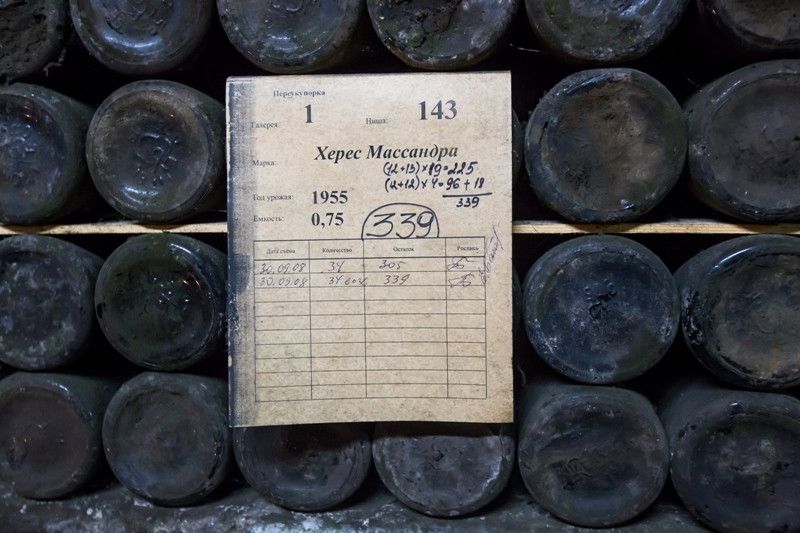 Переукупорка
Галерея: 1 Ниша: 143
Марка: Херес Массандра
(12+13)×9=225
(12+12)×4=96+18
339
Год урожая: 1955
Емкость: 0,75
339
Дата съёма Количество Остаток Роспись
30.09.08 34 305
30.09.08 34 339